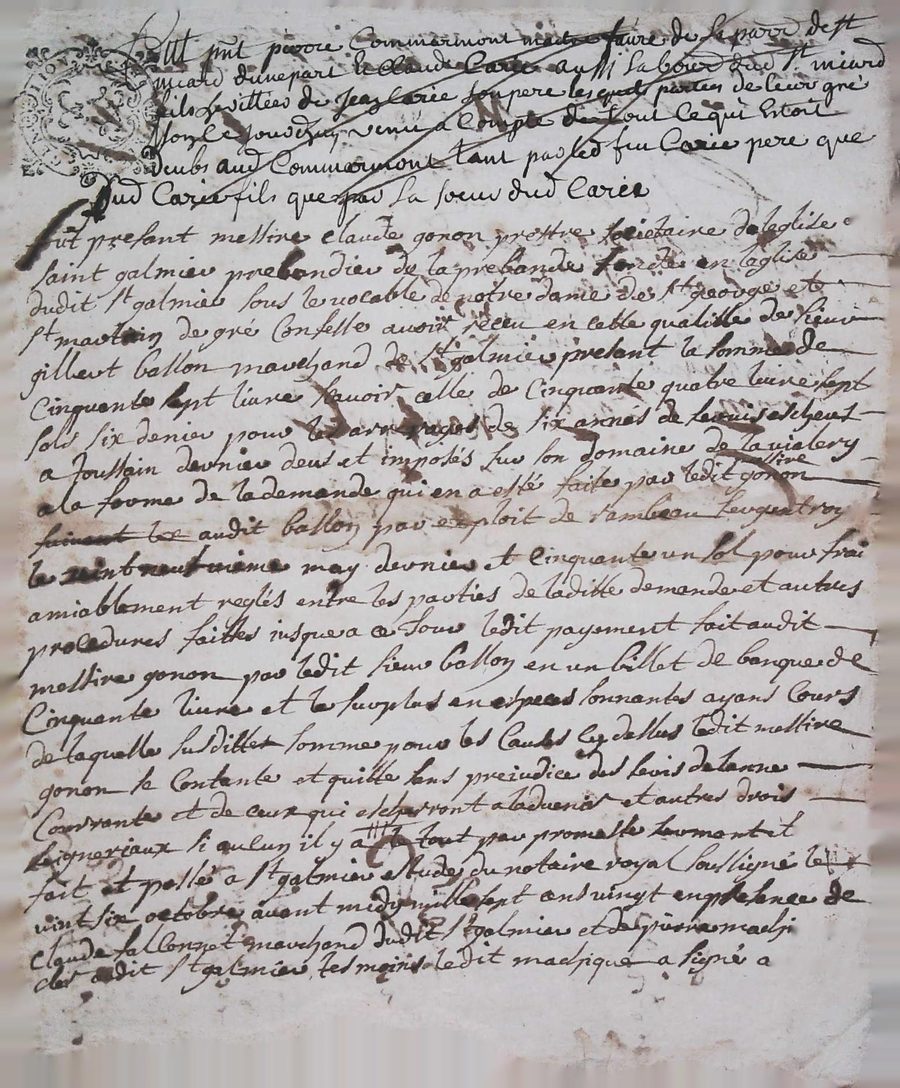 fut pnt pierre Commarmont maitre faure de la parr de st
miard dune part et Claude Carie aussi labour dud st miard
fils de Jean Carie son pere lesquels parties de leur gré
ont ce jourdhuy venu a Compte de tout ce qui Estoit
deubs aud Commarmont tant par led feu Carie pere que
dud Carie fils que par la soeur dud Carie
fut presant messire claude gonon prestre societaire de leglise
saint galmier prebandier de la prebande fondée en leglise
dudit st galmier sous le vocable de notre dame de st george et
st martin de gré confesse avoir receu en cette qualitte de sieur
gilbert ballon marchand de st galmier presant la somme de
cinquante sept livre scavoir celle de cinquante quatre livre sept
sols six denier pour les arrerages de six annes de servis escheus
a toussain dernier deus et imposés sur son domaine de la vialery
a la forme de la demande qui en a esté faite par ledit messire gonon
suivant les audit ballon par exploit de rambeau sergent roy
le vint neufvieme may dernier et cinquante un sol pour frai
amiablement reglés entre les parties de laditte demande et autres
procedures faittes jusque a ce jour ledit payement fait audit
messire gonon par ledit sieur ballon en un billet de banque de
Cinquante livre et le surplus en especes sonnantes ayans cours
de laquelle susditte somme pour les causes cy dessus ledit messire
gonon se contente et quitte sans prejudice des servis de lanne
Courrante et de ceux qui escherront a ladvenir et autres drois
seigneriaux si aulcun il y a le tout par promesse serment et
fait et passé a st galmier estude du notaire royal soussigné le
vint six octobre avant midy mille sept cens vingt en presence de
claude fallonnet marchand dudit st galmier et de pierre
audit st galmier tesmoins ledit a signé a